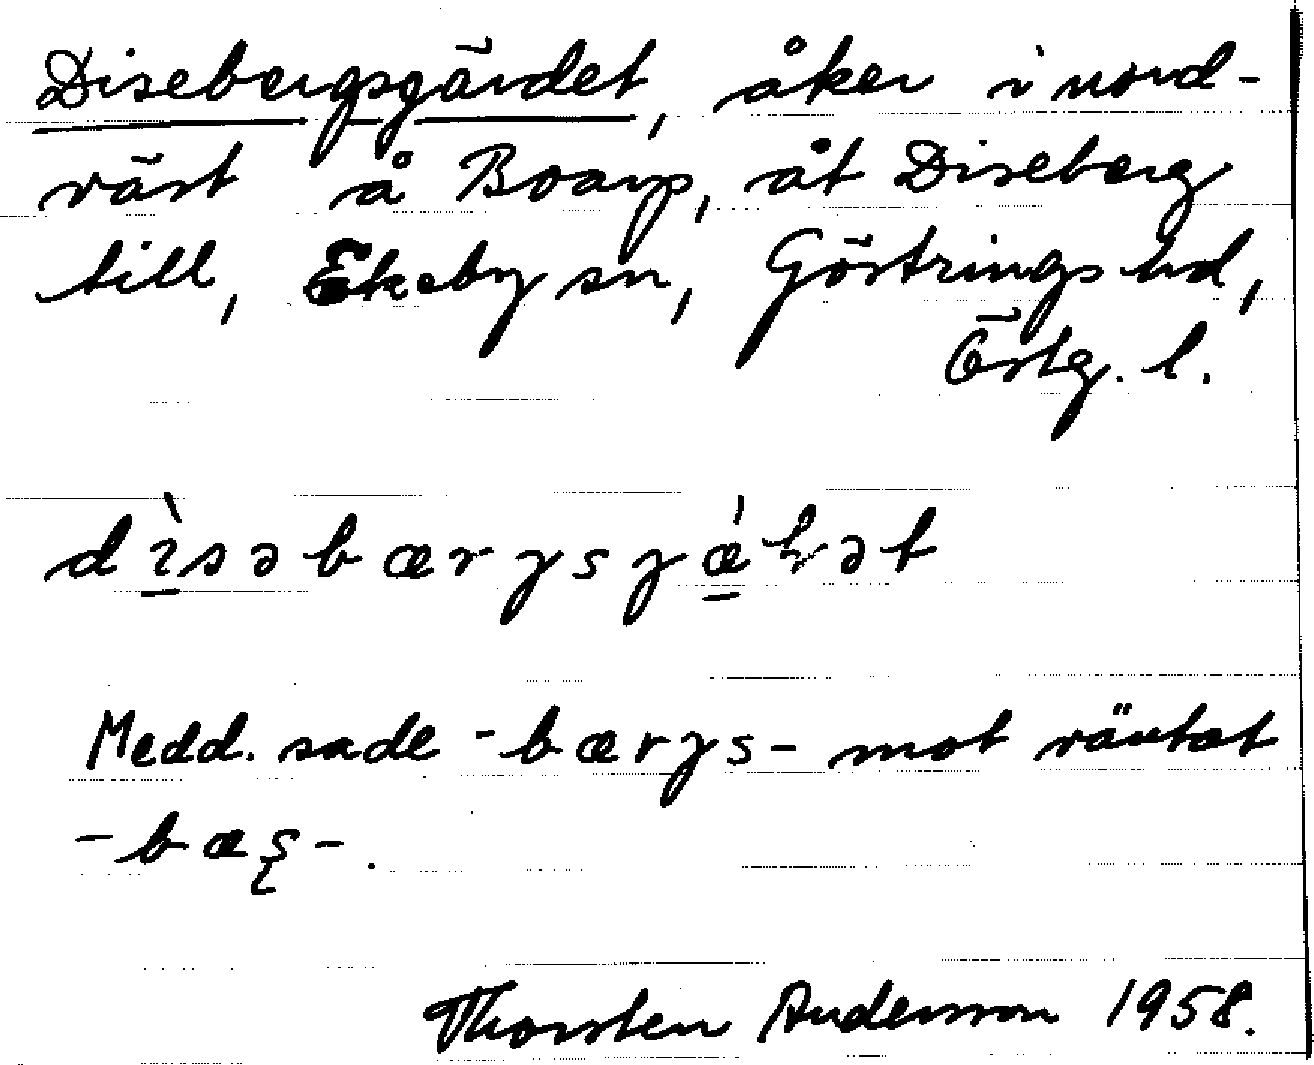 Disebergsgärdet, åker i nord-
väst å Boarp, åt Diseberg
till, Ekeby sn, Göstrings hd,
Östg. l.
dìsəbærgsgǽɦət
Medd. sade -bærgs- mot väntat
-bæꞩ-.
Thorsten Andersson 1958.